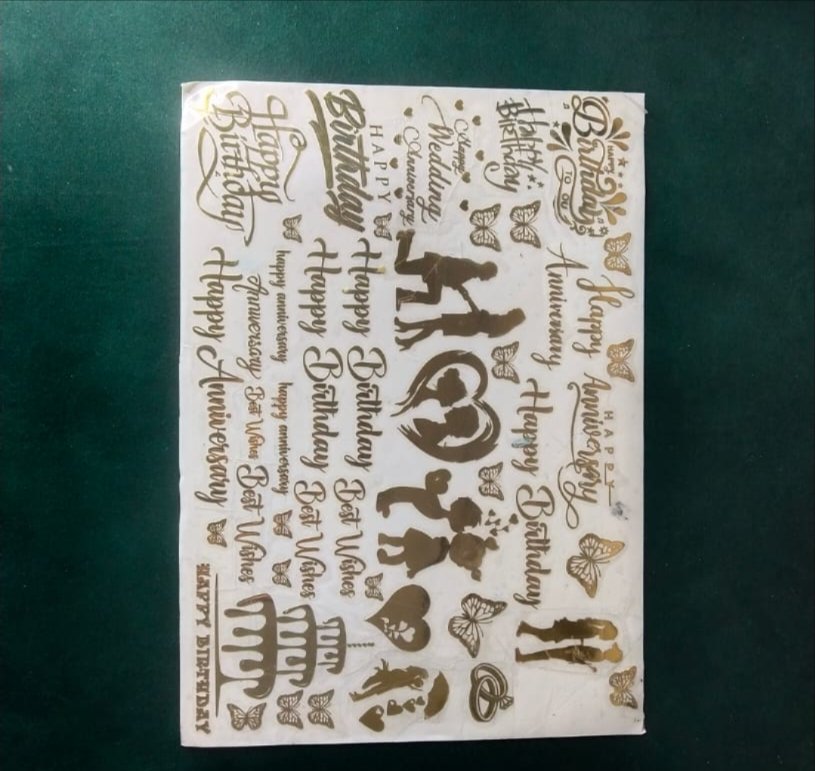 HAPPY
Birthday
TO YOU
Happy
Anniversary
HAPPY
Anniversary
Happy
Birthday
Happy Birthday
Happy
Wedding
Anniversary
HAPPY
Birthday
Happy Birthday
Best Wishes
Happy Birthday
Best Wishes
Happy
Birthday
happy anniversary
happy anniversary
Anniversary
Best Wishes
Best Wishes
Happy Anniversary
HAPPY BIRTHDAY